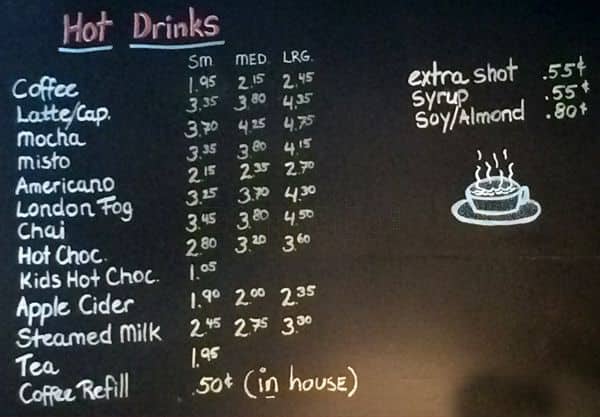 Hot Drinks
Sm. MED. LRG.
Coffee 1.95 2.15 2.45
Latte/Cap. 3.35 3.80 4.35
mocha 3.70 4.25 4.75
misto 3.35 3.80 4.15
Americano 2.15 2.35 2.70
London Fog 3.25 3.70 4.30
Chai 3.45 3.80 4.50
Hot Choc. 2.80 3.20 3.60
Kids Hot Choc. 1.05
Apple Cider 1.90 2.00 2.35
Steamed Milk 2.45 2.75 3.30
Tea 1.95
Coffee Refill .50¢ (in house)
extra shot .55¢
Syrup .55¢
Soy/Almond .80¢